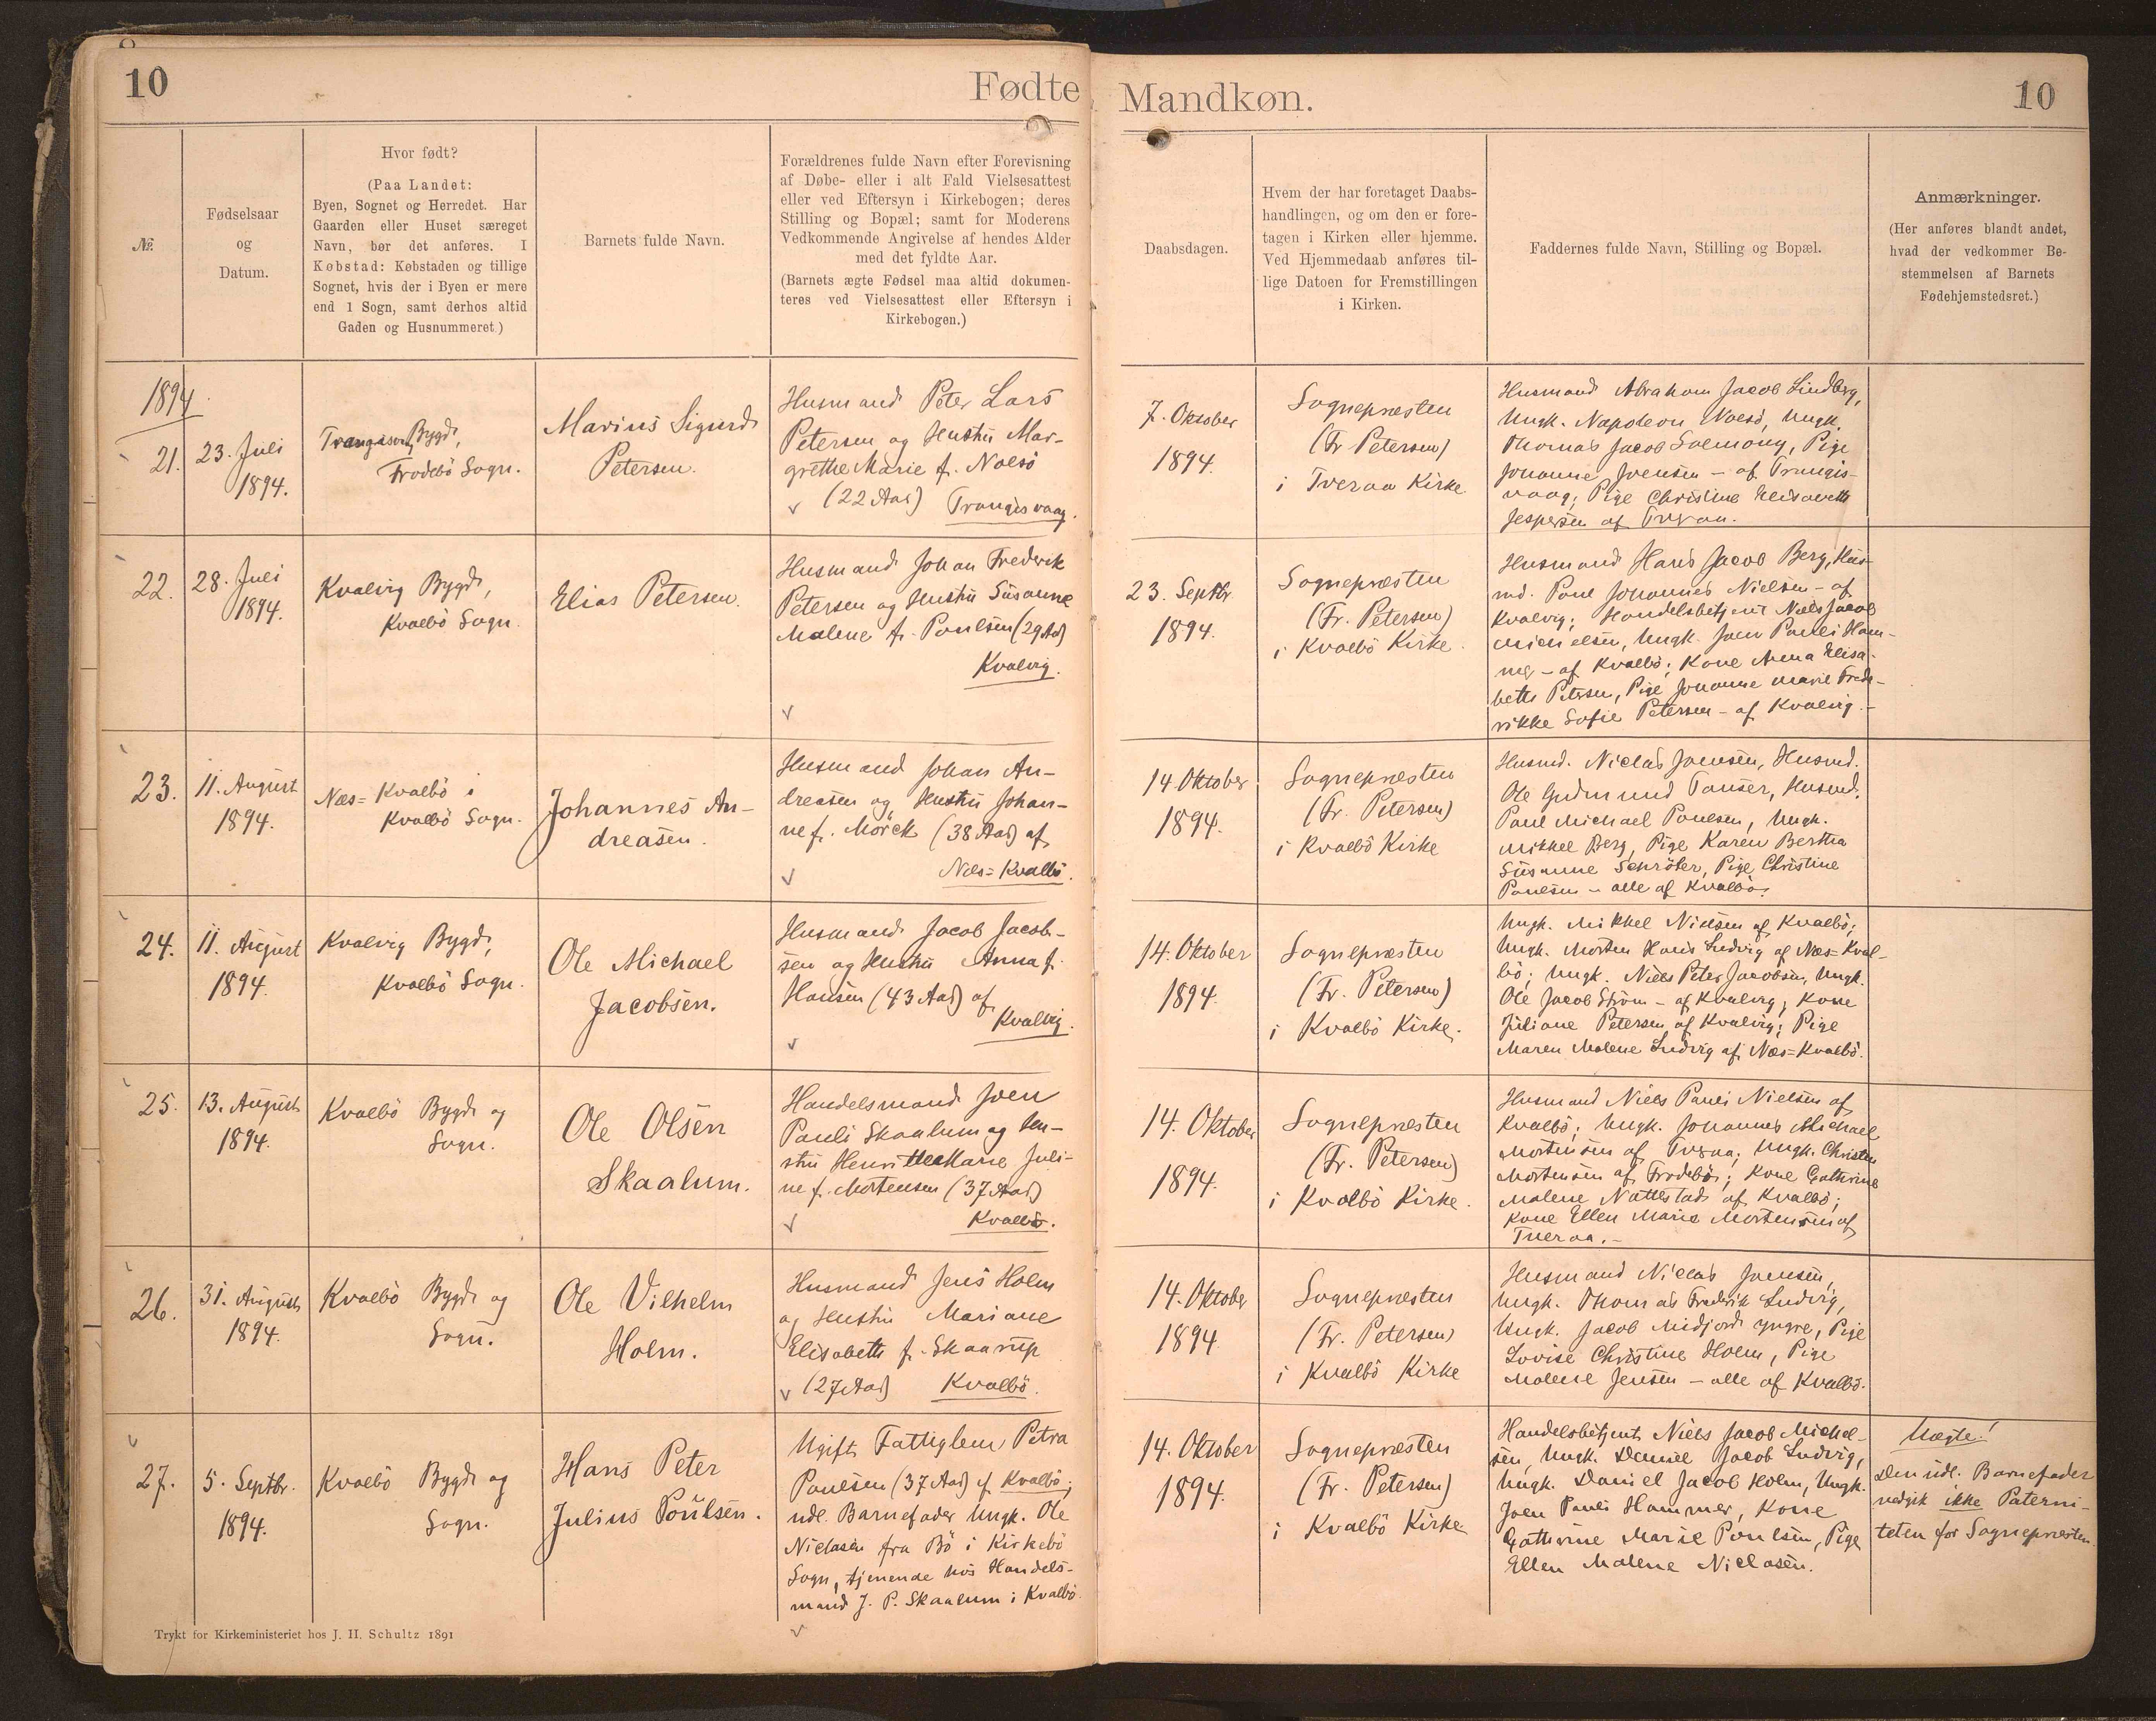 10
Fødte
Mandkøn.
10
№.
Fødselsaar
og
Datum.
Hvor født?
(Paa Landet:
Byen, Sognet og Herredet. Har
Gaarden eller Huset særeget
Navn, bør det anføres. I
Købstad: Købstaden og tillige
Sognet, hvis der i Byen er mere
end 1 Sogn, samt derhos altid
Gaden og Husnummeret.)
Barnets fulde Navn.
Forældrenes fulde Navn efter Forevisning
af Døbe- eller i alt Fald Vielsesattest
eller ved Eftersyn i Kirkebogen; deres
Stilling og Bopæl; samt for Moderens
Vedkommende Angivelse af hendes Alder
med det fyldte Aar.
(Barnets ægte Fødsel maa altid dokumen-
teres ved Vielsesattest eller Eftersyn i
Kirkebogen.)
Daabsdagen.
Hvem der har foretaget Daabs-
handlingen, og om den er fore-
tagen i Kirken eller hjemme.
Ved Hjemmedaab anføres til-
lige Datoen for Fremstillingen
i Kirken.
Faddernes fulde Navn, Stilling og Bopæl.
Anmærkninger.
(Her anføres blandt andet,
hvad der vedkommer Be-
stemmelsen af Barnets
Fødehjemstedsret.)
1894
21.
23. Juli
1894.
Bygd,
Frodebö Sogn.
Marius Sigurd
Petersen.
Husmand Peter Lars
Petersen og Hustru Mar-
grethe Marie f. Nolsö
(22 Aar) Trangisvaag.
7. Oktober
1894.
Sognepræsten
(Fr. Petersen)
i Tveraa Kirke
Husmand Abraham Jacob Lindberg,
Ungk. Napoleon Nolsö, Ungk.
Thomas Jacob Salmony, Pige
Johanne Joensen - af Trangis-
vaag; Pige Christine Elisabeth
Jespersen af Tveraa.
22.
28. Juli
1894.
Kvalvig Bygd,
Kvalbö Sogn.
Elias Petersen.
Husmand Johan Frederik
Petersen og Hustru Susanne
Malene f. Poulsen (29 Aar)
Kvalvig.
23. Septbr.
1894.
Sognepræsten
(Fr. Petersen)
i Kvalbö Kirke.
Husmand Hans Jacob Berg, Hus-
md. Poul Johannes Nielsen - af
Kvalvig; Handelsbetjent Niels Jacob
Michelsen, Ungk. Joen Pauli Ham-
mer - af Kvalbö; Kone Anna Elisa-
beth Petersen, Pige Johanne Marie Frede-
rikke Sofie Petersen - af Kvalvig.
23.
11. August
1894.
Næs=Kvalbö i
Kvalbö Sogn.
Johannes An-
dreasen.
Husmand Johan An-
dreasen og Hustru Johan-
ne f. Mörck (38 Aar) af
Næs=Kvalbö.
14 Oktober
1894.
Sognepræsten
(Fr. Petersen)
i Kvalbö Kirke
Husmd. Niclas Joensen, Husmd.
Ole Gudmund Tausen, Husmd.
Poul Michael Poulsen, Ungk.
Mikkel Berg, Pige Karen Bertha
Susanne Schröter, Pige Christine
Poulsen - alle af Kvalbö.
24.
11. August
1894.
Kvalvig Bygd,
Kvalbö Sogn.
Ole Michael
Jacobsen.
Husmand Jacob Jacob-
sen og Hustru Anna f.
Hansen (43 Aar) af
Kvalvig.
14. Oktober
1894.
Sognepræsten
(Fr. Petersen)
i Kvalbö Kirke.
Ungk. Mikkel Nielsen af Kvalbö;
Ungk. Morten Hans Ludvig af Næs-Kval-
bö; Ungk. Niels Peter Jacobsen, Ungk.
Ole Jacob Ström - af Kvalvig; Kone
Juliane Petersen af Kvalvig; Pige
Maren Malene Ludvig af Næs=Kvalbö.
25.
13. August
1894.
Kvalbö Bygd og
Sogn.
Ole Olsen
Skaalum.
Handelsmand Joen
Pauli Skaalum og Hu-
stru Henriette Marie Juli-
ne f. Mortensen (37 Aar)
Kvalbö.
14. Oktober
1894.
Sognepræsten
(Fr. Petersen)
i Kvalbö Kirke.
Husmand Niels Pauli Nielsen af
Kvalbö; Ungk. Johannes Michael
Mortensen af Tveraa; Ungk. Christen
Mortensen af Frodebö; Kone Cathrine
Malene Nattestad af Kvalbö;
Kone Ellen Marie Mortensen af
Tveraa.-
26.
31. August
1894.
Kvalbö Bygd og
Sogn.
Ole Vilhelm
Holm.
Husmand Jens Holm
og Hustru Mariane
Elisabeth f. Skaarup
(27 Aar) Kvalbö.
14. Oktobr
1894
Sognepræsten
(Fr. Petersen)
i Kvalbö Kirke
Husmand Niclas Joensen,
Ungk. Thomas Frederik Ludvig,
Ungk. Jacob Midjord yngre, Pige
Lovise Christine Holm, Pige
Malene Jensen - alle af Kvalbö.
27.
5. Septbr.
1894.
Kvalbö Bygd og
Sogn.
Hans Peter
Julius Poulsen.
Ugift Fattiglem Petra
Poulsen (37 Aar) af Kvalbö;
udl. Barnefader Ungk. Ole
Niclasen fra Bö i Kirkebö
Sogn, tjenende hos Handels-
mand J. P. Skaalum i Kvalbö.
14. Oktober
1894.
Sognepræsten
(Fr. Petersen)
i Kvalbö Kirke
Handelsbetjent Niels Jacob Michel-
sen, Ungk. Daniel Jacob Ludvig,
Ungk. Daniel Jacob Holm, Ungk.
Joen Pauli Hammer, Kone
Cathrine Marie Poulsen, Pige
Ellen Malene Niclasen.
Uægte!
Den udl. Barnefader
vedgik ikke Paterni-
teten for Sognepræsten.
Trykt for Kirkeministeriet hos J. H. Schultz 1891